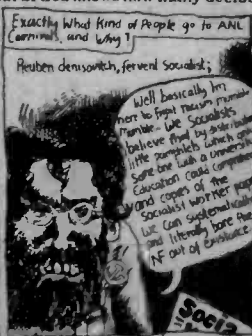 Exactly What Kind of People go to ANL
Carnivals, and Why?
Reuben denisovitch, fervent Socialist;
Well basically Im
here to fight racism mumble
mumble - We Socialists
believe that by distributing
little pamphlets which only
some one with a University
Education could comprehend
and copies of the
Socialist Worker
we can systematically
and literally bore the
NF out of existence
Socia